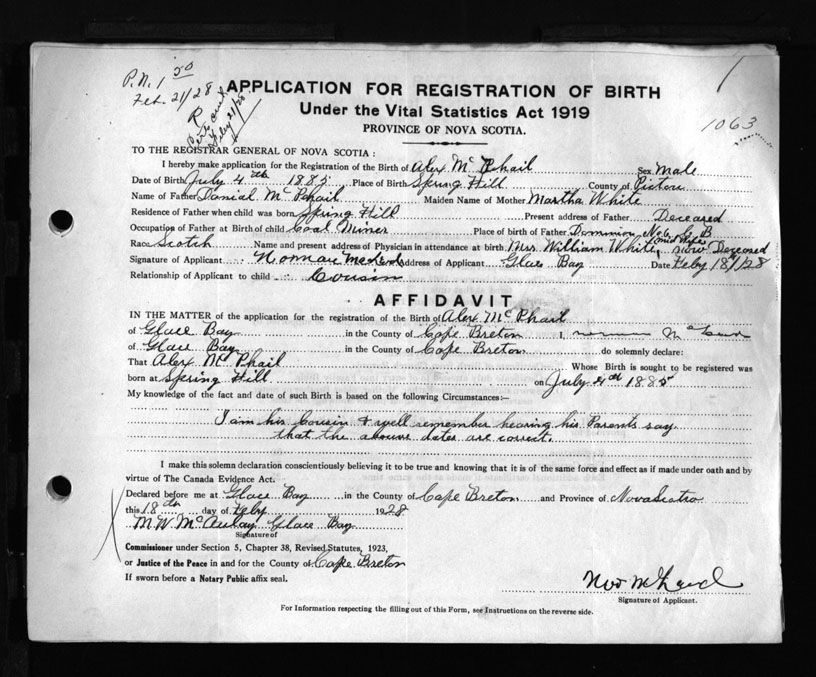 P.N. 1 50
Feb. 21/28
R
Feby 21/28
1063
APPLICATION FOR REGISTRATION OF BIRTH
Under the Vital Statistics Act 1919
PROVINCE OF NOVA SCOTIA.
TO THE REGISTRAR GENERAL OF NOVA SCOTIA :
I hereby make application for the Registration of the Birth of Alex Mc Phail Sex Male
Date of Birth July 4th 1885 Place of Birth Spring Hill County of Pictou
Name of Father Danial Mc Phail Maiden Name of Mother Martha White
Residence of Father when child was born Spring Hill Present address of Father Deceased
Occupation of Father at Birth of child Coal Miner Place of birth of Father Dominion No 6 C B
Race Scotch Name and present address of Physician in attendance at birth Mrs. William White (mid wife) now Deceased
Signature of Applicant Norman McLeod Address of Applicant Glace Bay Date Feby 18/1928
Relationship of Applicant to child Cousin
AFFIDAVIT
IN THE MATTER of the application for the registration of the Birth of Alex McPhail
of Glace Bay in the County of Cape Breton I, Norman McLeod
of Glace Bay in the County of Cape Breton do solemnly declare:
That Alex Mc Phail Whose Birth is sought to be registered was
born at Spring Hill on July 4th 1885
My knowledge of the fact and date of such Birth is based on the following Circumstances:—
I am his Cousin & well remember hearing his Parents say
that the above dates are correct.
I make this solemn declaration conscientiously believing it to be true and knowing that it is of the same force and effect as if made under oath and by
virtue of The Canada Evidence Act.
Declared before me at Glace Bay in the County of Cape Breton and Province of Nova Scotia
this 18th day of Feby 1928
M.W. McAulay Glace Bay
Signature of
Commissioner under Section 5, Chapter 38, Revised Statutes, 1923,
or Justice of the Peace in and for the County of Cape Breton
If sworn before a Notary Public affix seal.
Nor McLeod
Signature of Applicant.
For Information respecting the filling out of this Form, see Instructions on the reverse side.